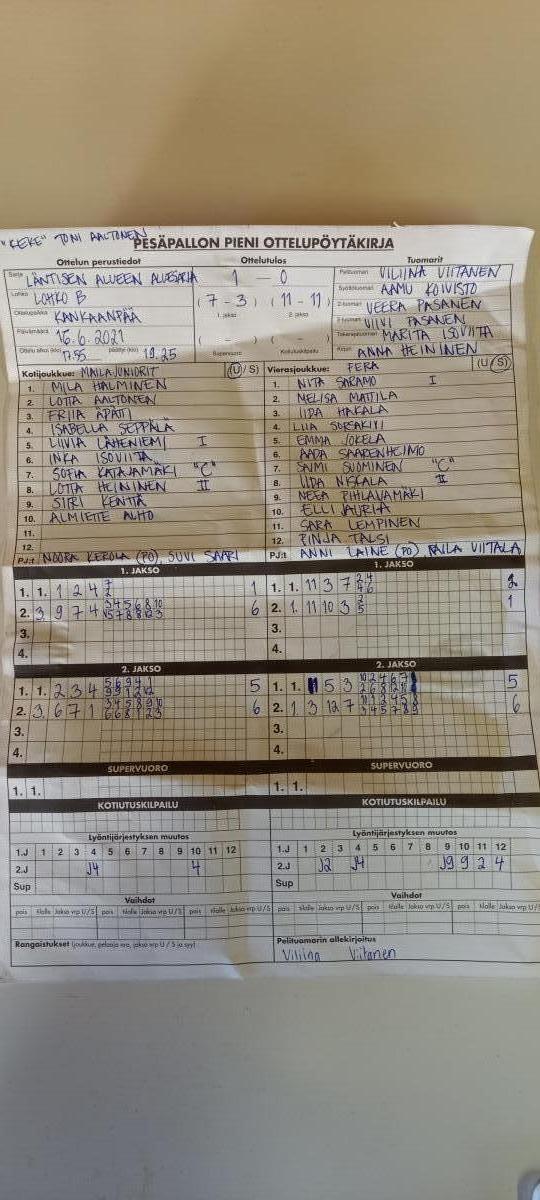 "KEKE" TONI AALTONEN
PESÄPALLON PIENI OTTELUPÖYTÄKIRJA
Ottelun perustiedot Ottelutulos Tuomarit
Sarja LÄNTISEN ALUEEN ALUESARJA 1 - 0 Pelituomari VILIINA VIITANEN
Lohko LOHKO B (7 - 3) (11 - 11) Syöttötuomari AAMU KOIVISTO
Ottelupaikka KANKAANPÄÄ 1. jakso 2. jakso 2-tuomari VEERA PASANEN
Päivämäärä 16.6.2021 ( - ) ( - ) 3-tuomari VIIVI PASANEN
Supervuoro Kotiutuskilpailu Takarajatuomari MARITA ISOVIITA
Ottelu alkoi (klo) 17.55 päättyi (klo) 19.25 Kirjuri ANNA HEININEN
Kotijoukkue: MAILAJUNIORIT (U/S) Vierasjoukkue: FERA (U/S)
1. MILA HALMINEN 1. NITA SARAMO I
2. LOTTA AALTONEN 2. MELISA MATTILA
3. FRIIA ÄPÄTI 3. IIDA HAKALA
4. ISABELLA SEPPÄLÄ 4. LIIA
5. LIIVIA LÄHTENIEMI I 5. EMMA JOKELA
6. INKA ISOVIITA 6. AADA SAARENHEIMO
7. SOFIA KATAJAMÄKI "C" 7. SAIMI SUOMINEN "C"
8. LOTTA HEININEN II 8. IIDA NISKALA II
9. SIIRI KENTTÄ 9. NEEA PIHLAVAMÄKI
10. ALMIETTE ALHO 10. ELLI JAURIA
11. 11. SARA LEMPINEN
12. 12. PINJA TALSI
PJ:t NOORA KEROLA (PO), SUVI SAARI PJ:t ANNI LAINE (PO), RAILA VIITALA
1. JAKSO 1. JAKSO
1. 1. 1 2 4 7 2 1 1. 1. 11 3 7 2 4 4 6 2
2. 3 9 7 4 3 4 5 6 8 10 6 2. 1 11 10 3 2 5 1
3. 3.
4. 4.
2. JAKSO 2. JAKSO
1. 1. 2 3 4 5 1. 1. 5 3 5
2. 3 6 7 1 3 4 5 8 9 10 6 6 8 1 2 3 6 2. 1 3 12 7 6
3. 3.
4. 4.
SUPERVUORO SUPERVUORO
1. 1. 1. 1.
KOTIUTUSKILPAILU KOTIUTUSKILPAILU
Lyöntijärjestyksen muutos Lyöntijärjestyksen muutos
1.J 1 2 3 4 5 6 7 8 9 10 11 12 1.J 1 2 3 4 5 6 7 8 9 10 11 12
2.J J4 4 2.J J2 J4 J9 9 2 4
Sup Sup
Vaihdot Vaihdot
pois tilalle Jakso vrp U/S pois tilalle Jakso vrp U/S pois tilalle Jakso vrp U/S pois tilalle Jakso vrp U/S
Rangaistukset (joukkue, pelaaja nro, jakso vrp U / S ja syy) Pelituomarin allekirjoitus
Viliina Viitanen